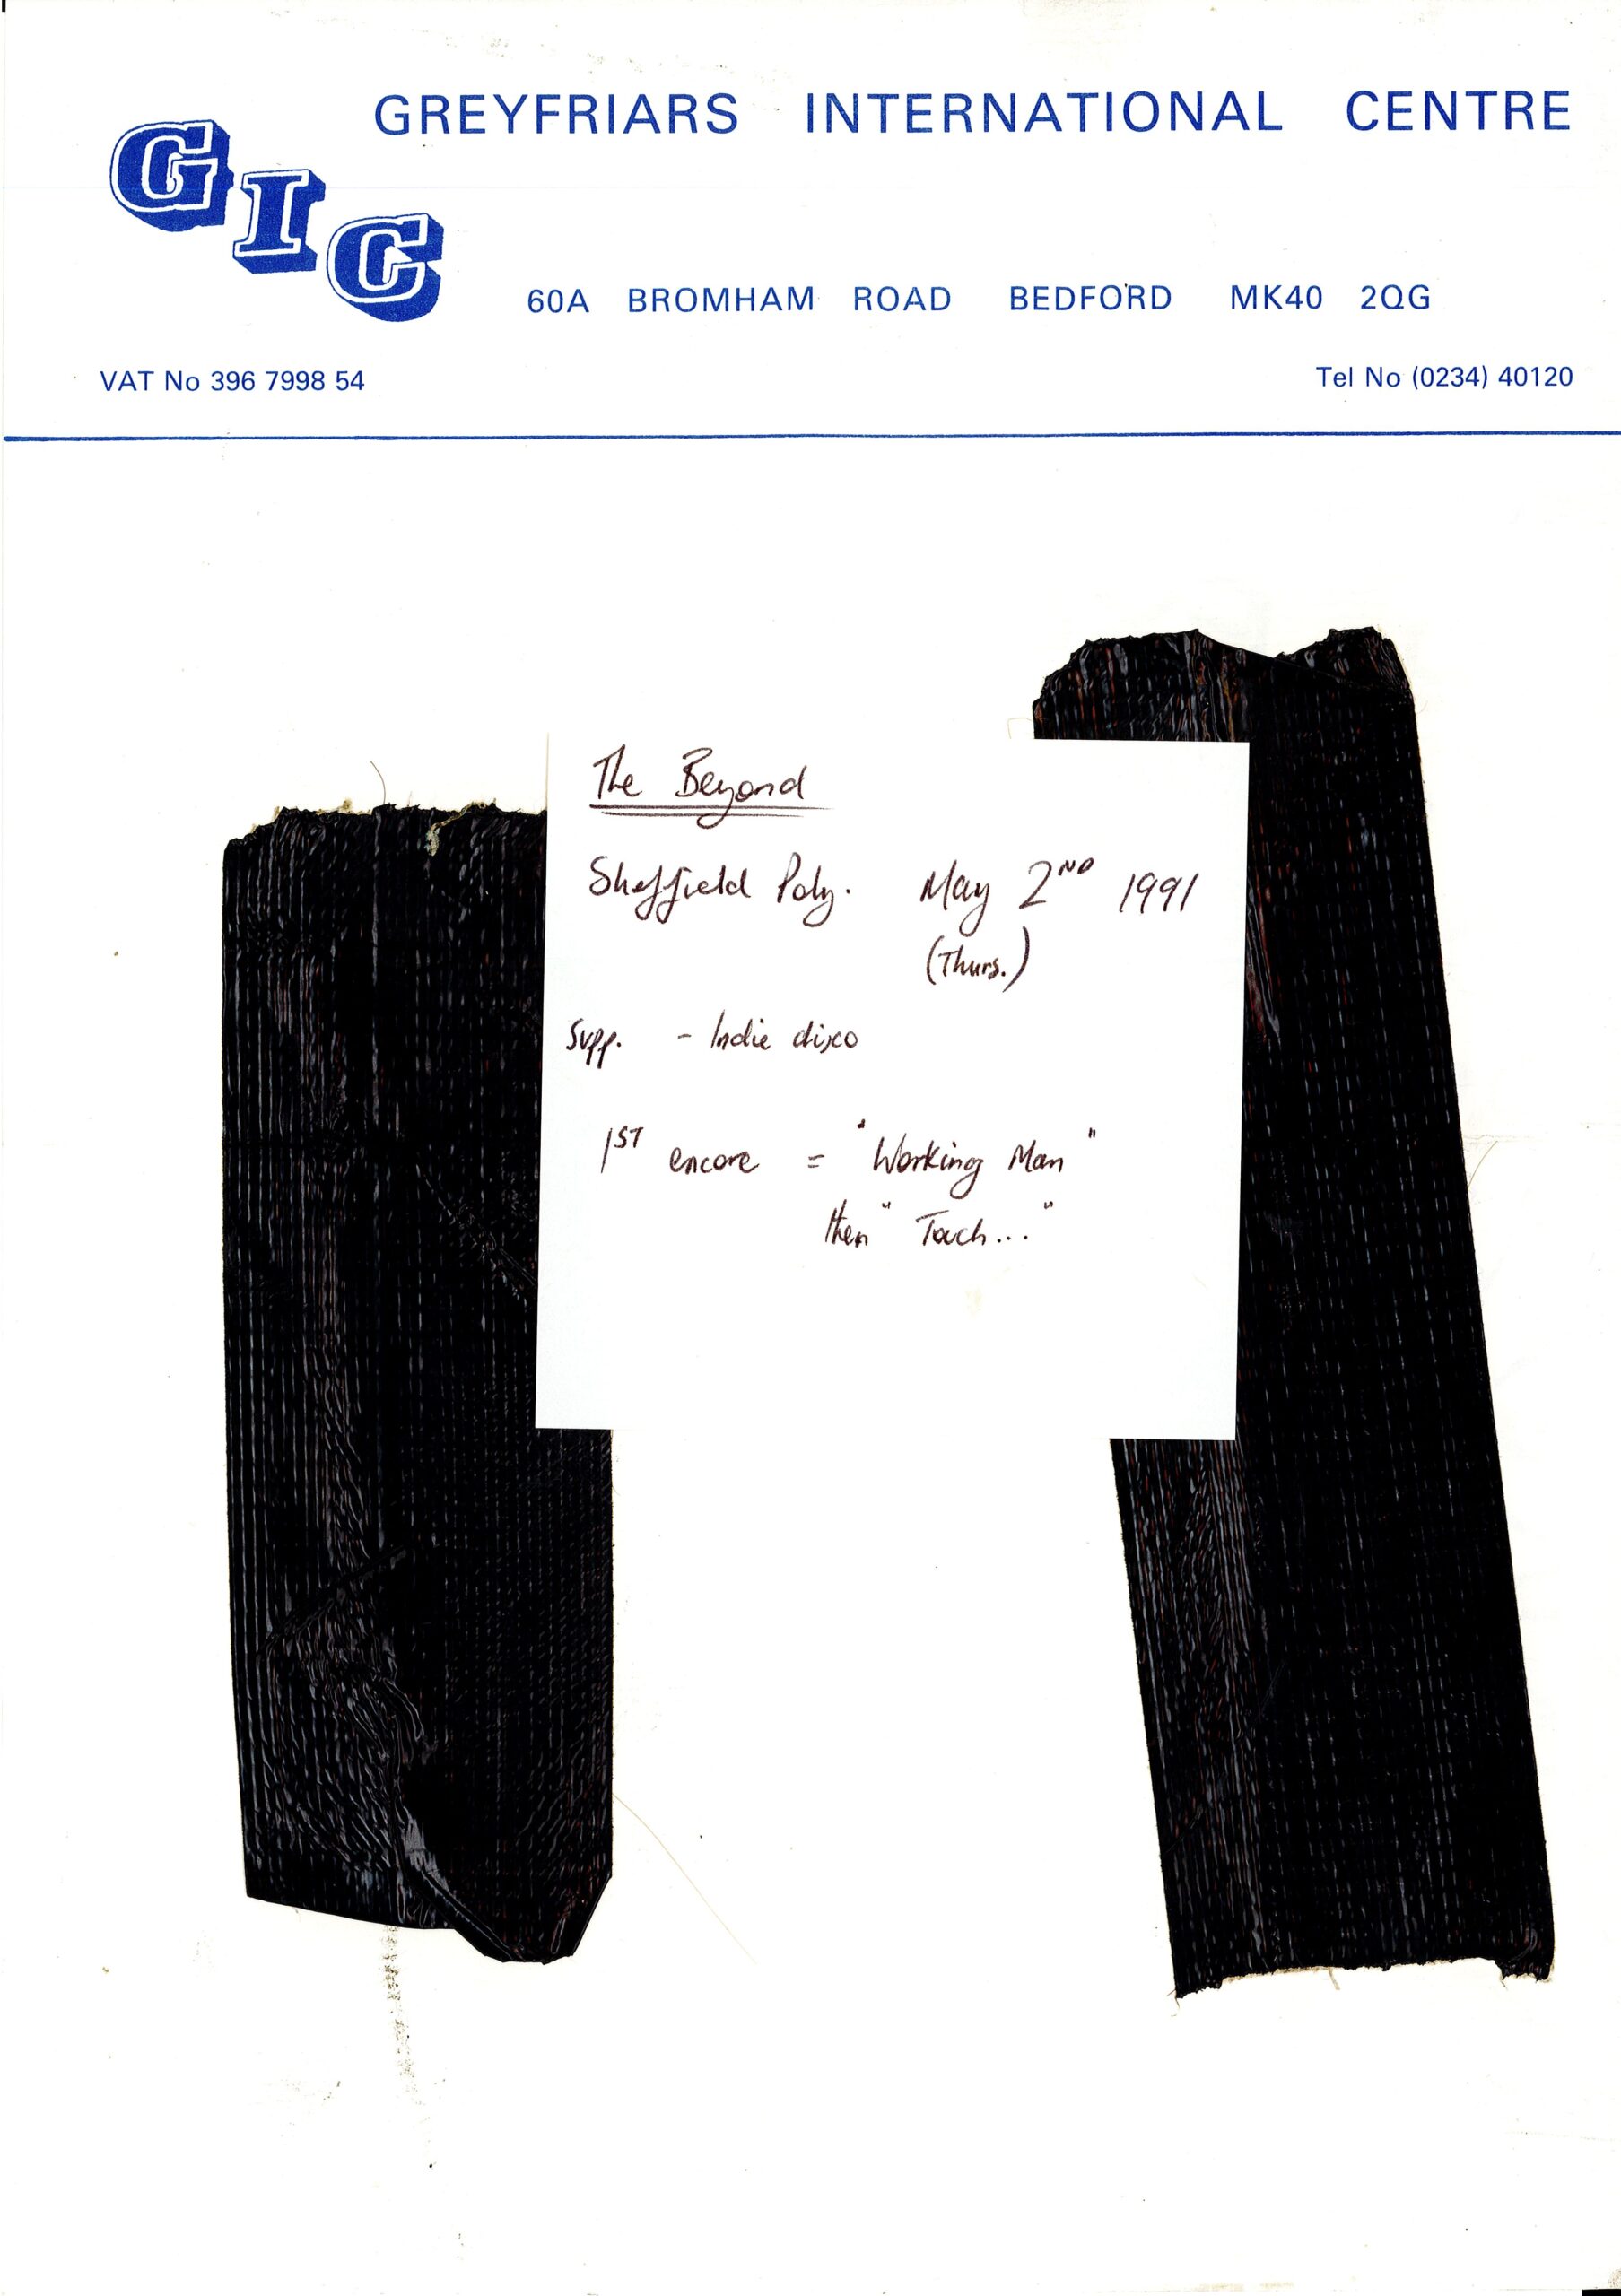 GREYFRIARS INTERNATIONAL CENTRE
GIC
60A BROMHAM ROAD BEDFORD MK40 2QG
VAT No 396 7998 54
Tel No (0234) 40120
The Beyond
Sheffield Poly. May 2ND 1991
(Thurs.)
Supp. - Indie disco
1ST encore = "Working Man"
then "Touch..."